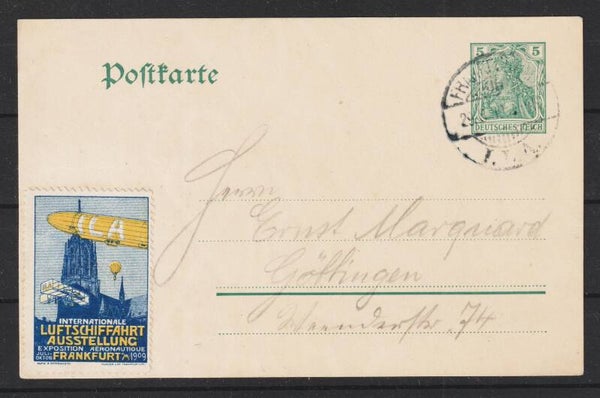 5 5
Postkarte
DEUTSCHES REICH
I.L.A.
Herrn
Ernst Marquard
Göttingen
Weenderstr. 74
ILA
INTERNATIONALE
LUFTSCHIFFAHRT
AUSSTELLUNG
EXPOSITION AÉRONAUTIQUE
JULI-
OKTOB FRANKFURT A/M 1909